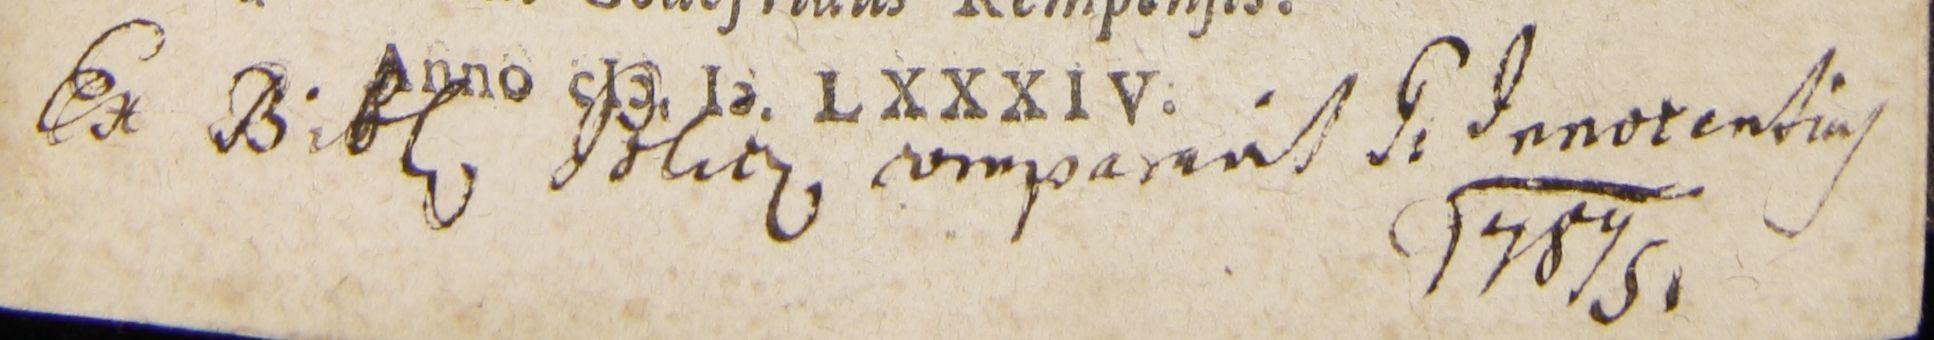 Godefridus Kempensis.
Anno cIɔ. Iɔ. LXXXIV.
Ex Bibl Politz comparavit P. Innocentius
1787